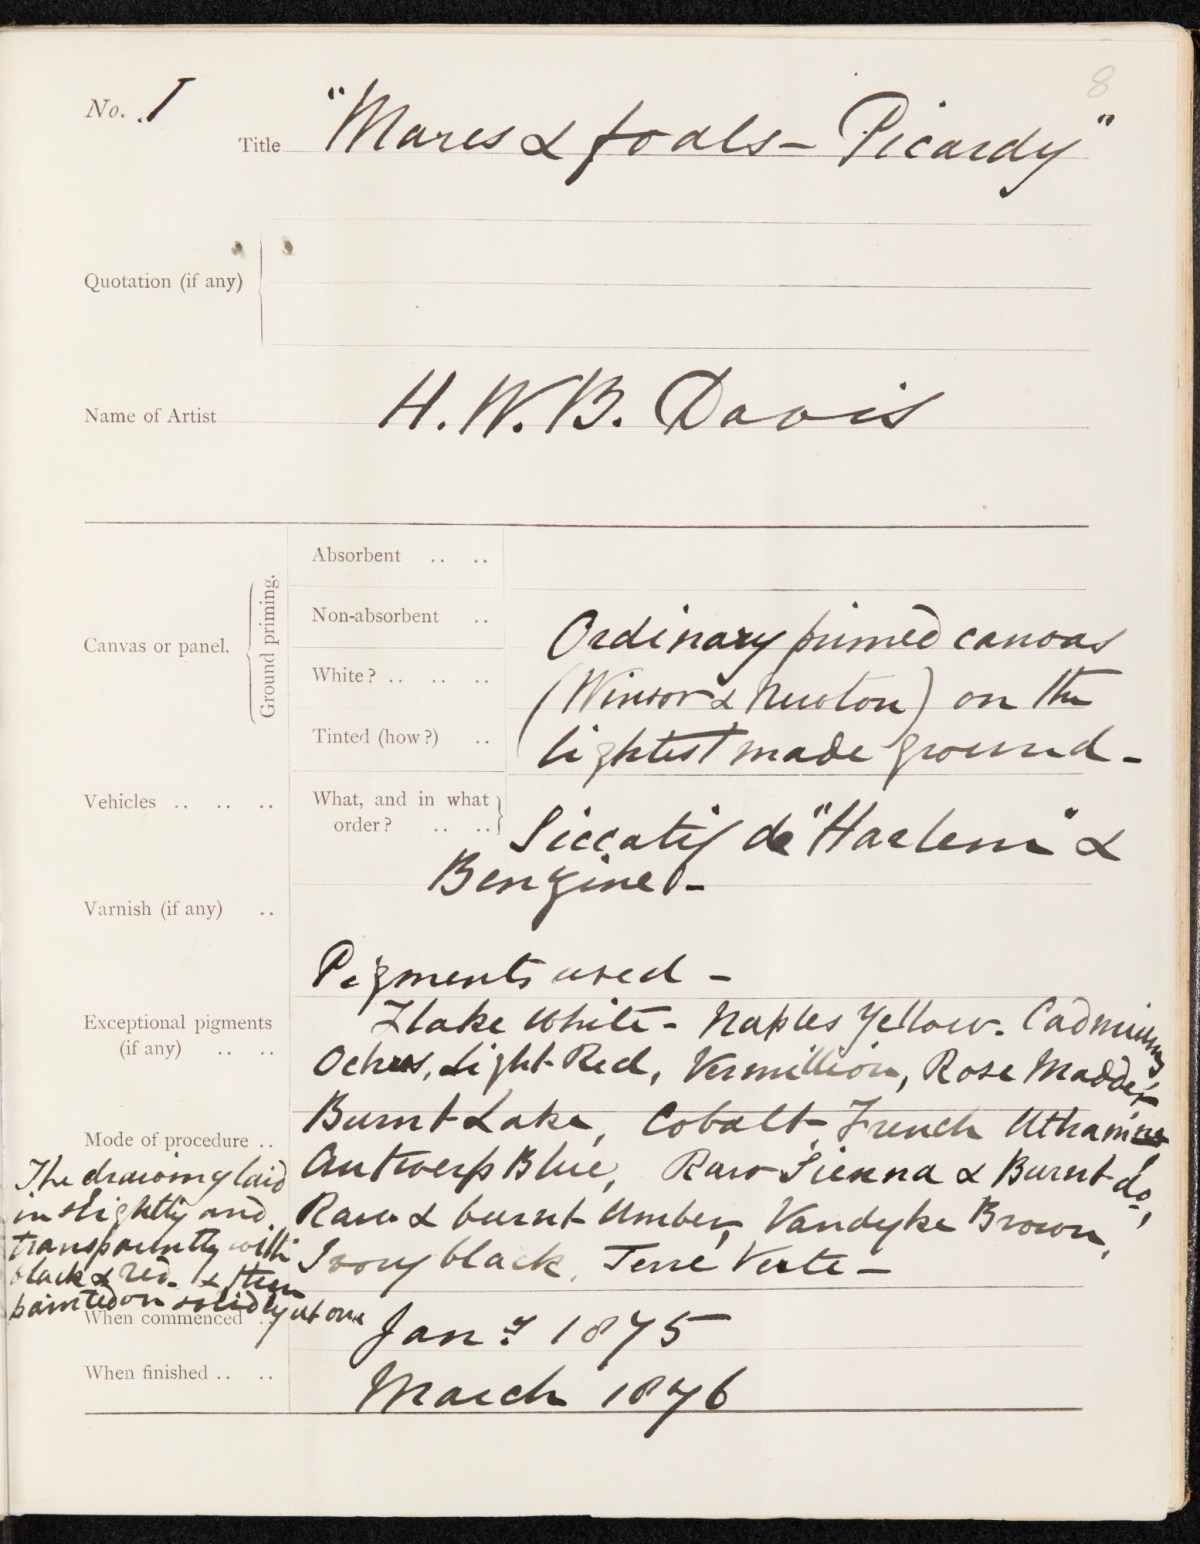 8
No. I
Title "Mares & foals – Picardy"
Quotation (if any)
Name of Artist H. W. B. Davis
Canvas or panel.
Ground priming.
Absorbent .. ..
Non-absorbent ..
White? .. .. ..
Tinted (how?) ..
Ordinary primed canvas
(Winsor & Newton) on the
lightest made ground –
Vehicles .. .. ..
What, and in what
order? .. ..
Siccatif de "Harlem" &
Benzine –
Varnish (if any) ..
Pigments used –
Exceptional pigments
(if any) .. ..
Flake White – Naples Yellow. Cadmiums
Ochres, Light Red, Vermillion, Rose Madder,
Burnt Lake, Cobalt, French Ultramine
Antwerp Blue, Raw Sienna & Burnt do,
Raw & burnt Umber, Vandyke Brown,
Ivory black. Terre Verte –
Mode of procedure ..
The drawing laid
in slightly and
transparently with
black & red – & then
painted on solidly at once
When commenced .. Jany 1875
When finished .. .. March 1876